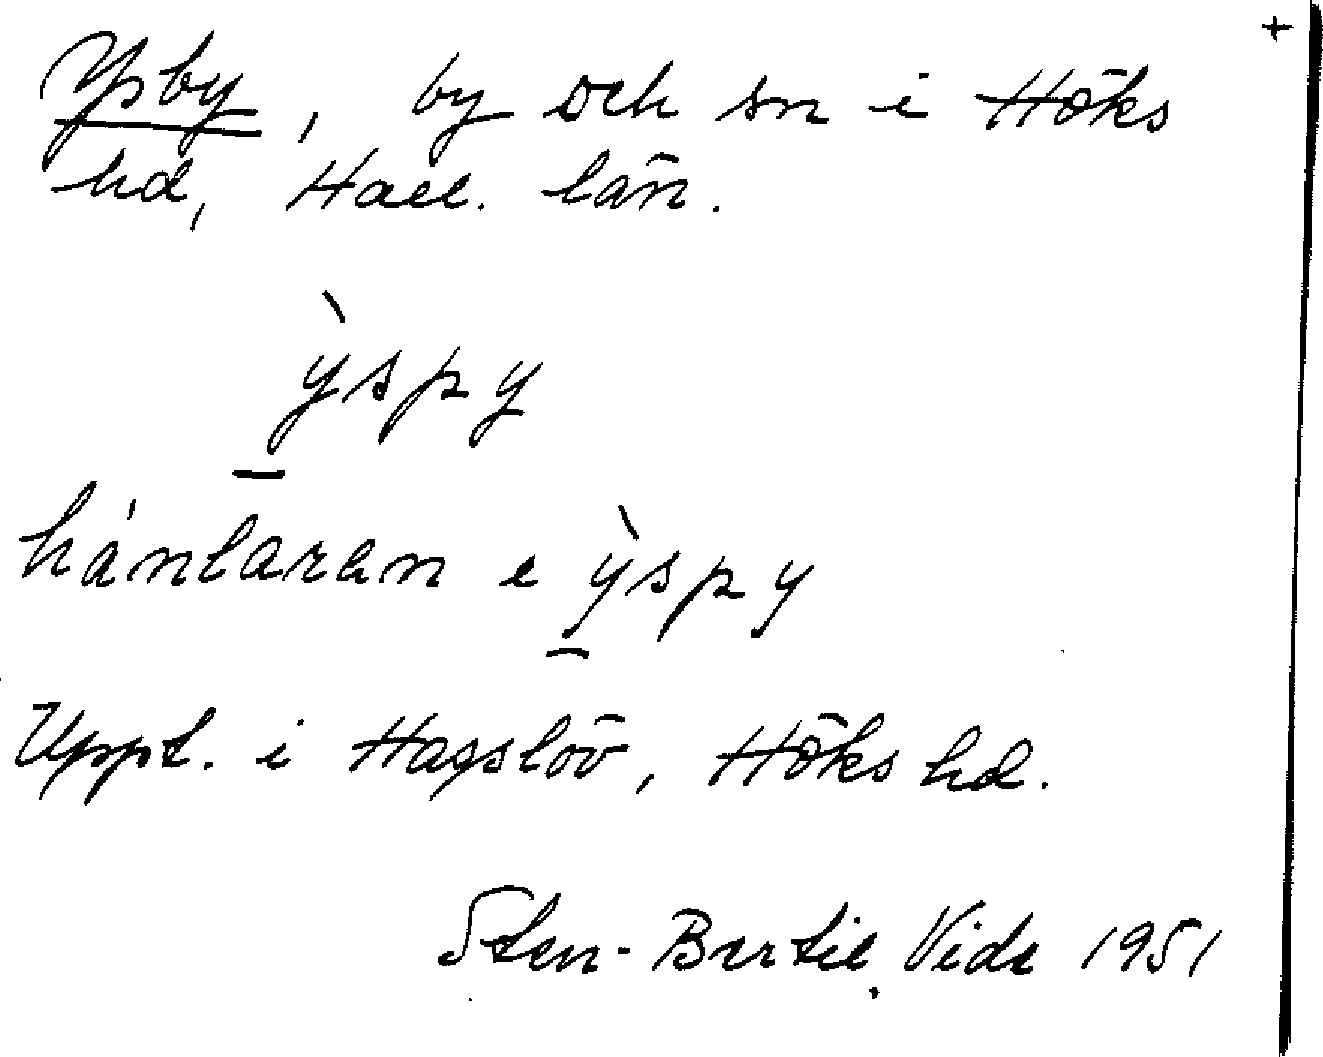 +
Ysby, by och sn i Höks
hd, Hall. län.
ỳspy
hánlaran e ỳspy
Uppt. i Hasslöv, Höks hd.
Sten-Bertil Vide 1951